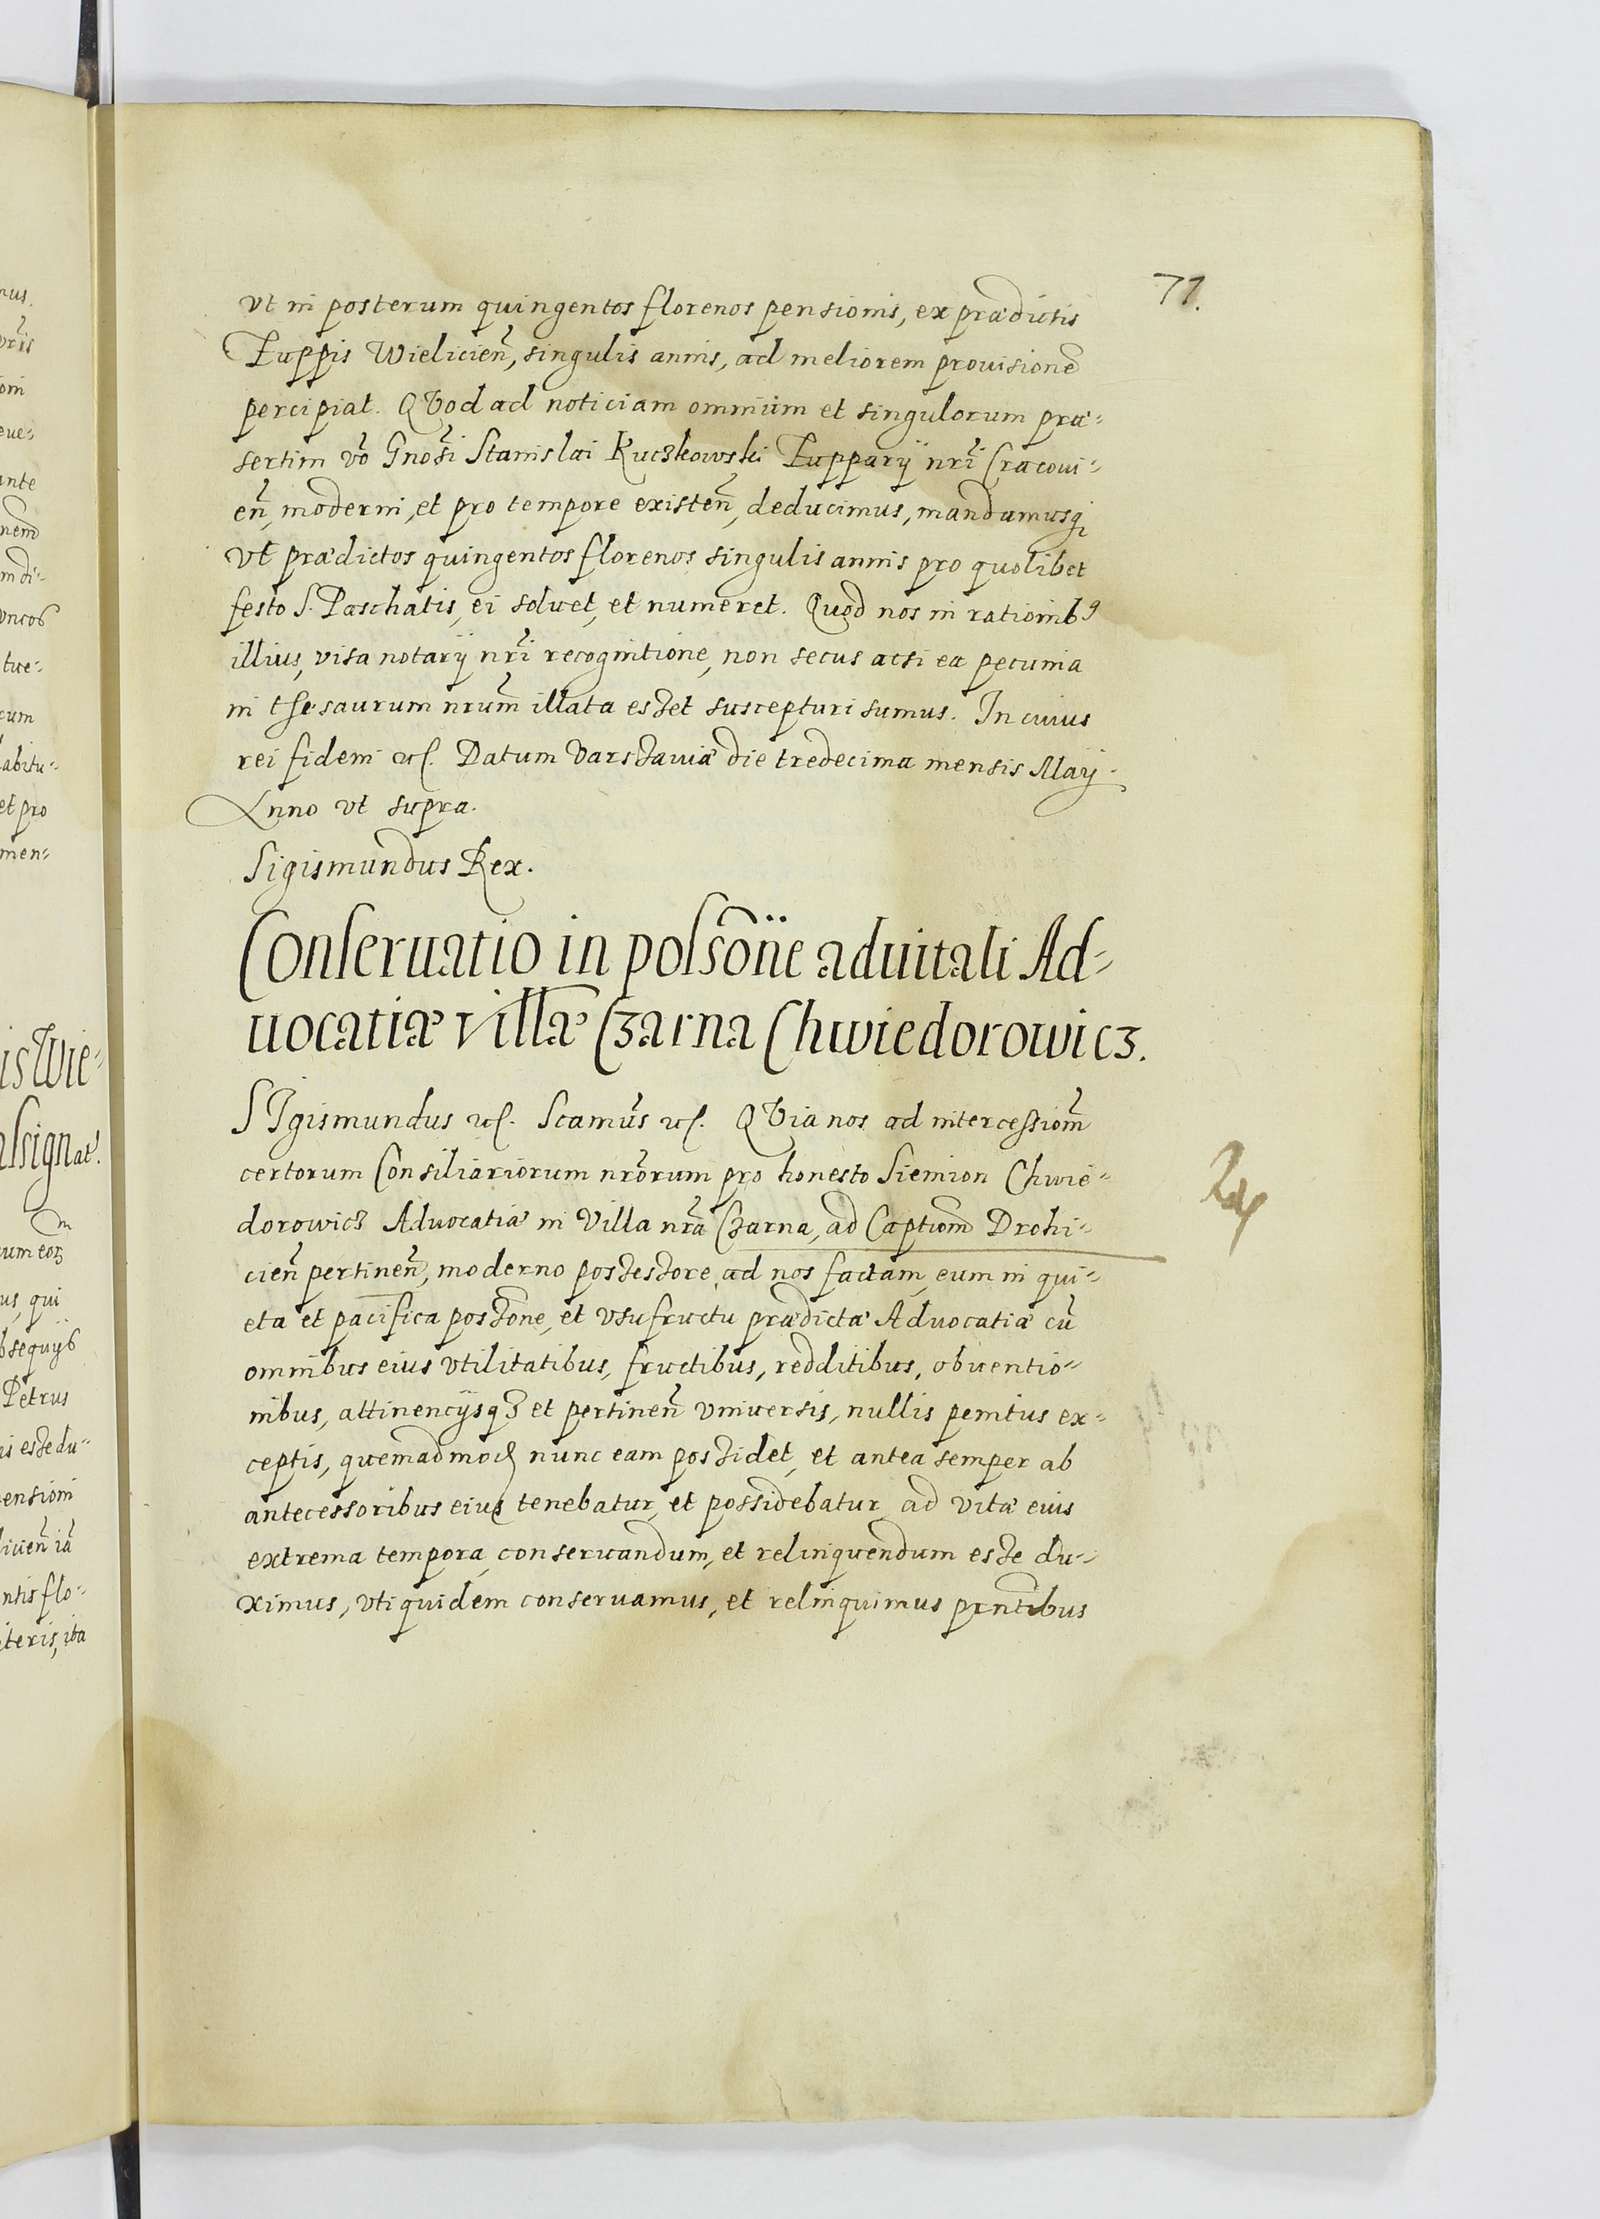 71.
vt in posterum quingentos florenos pensionis, ex prædictis
Zuppis Wielicien̄, singulis annis, ad meliorem prouisionē
percipiat. QVod ad noticiam omnium et singulorum præ-
sertim vō Gnōsi Stanislai Kuczkowski Zupparij nr̄i Cracoui-
en̄, moderni, et pro tempore existen̄, deducimus, mandamusq
vt prædictos quingentos florenos singulis annis pro quolibet
festo S. Paschatis, ei soluet, et numeret. Quod nos in rationibꝰ
illius, visa notarij nr̄i recognitione, non secus acsi ea pecunia
in thesaurum nrum̄ illata esset suscepturi sumus. In cuius
rei fidem etc. Datum Varssauiæ die tredecima mensis Maij
Anno vt supra.
Sigismundus Rex.
Conseruatio in possōne aduitali Ad-
uocatiæ villæ Czarna Chwiedorowicz.
SIgismundus etc. Scamus̄ etc. QVia nos ad intercessiom̄
certorum Consiliariorum nrōrum pro honesto Siemion Chwie-
dorowicz Aduocatiæ in Villa nrā Czarna, ad Captiom̄ Drohi-
cien̄ pertinen̄, moderno possessore, ad nos factam, eum in qui-
eta et pacifica possōne, et vsufructu prædictæ Aduocatiæ cū
omnibus eius vtilitatibus, fructibus, redditibus, obuentio-
nibus, attinencijsqȝ et pertinen̄ vniuersis, nullis penitus ex-
ceptis, quemadmod nunc eam possidet, et antea semper ab
antecessoribus eius tenebatur, et possidebatur, ad vitæ eius
extrema tempora, conseruandum, et relinquendum esse du-
ximus, vti quidem conseruamus, et relinquimus prntībus